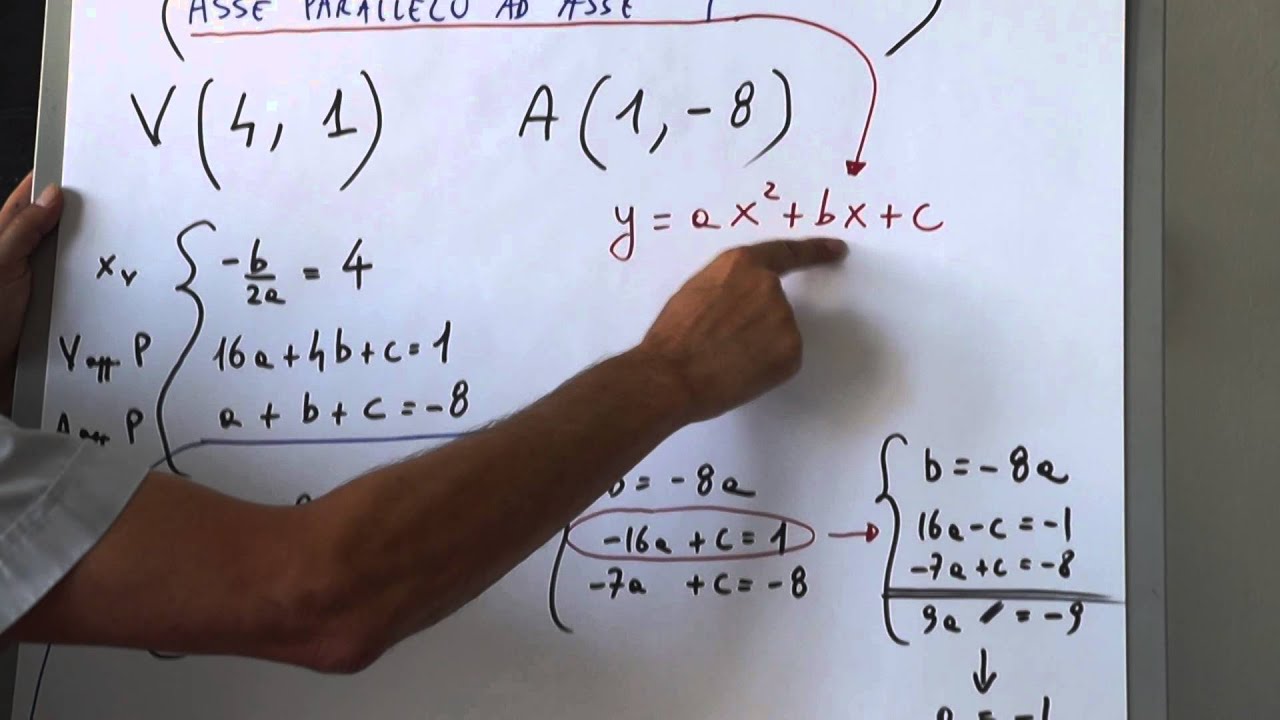 ASSE PARALLELO AD ASSE
V(4, 1) A(1, -8)
y = ax²+bx+c
xᵥ -b/2a = 4
V app. P 16a+4b+c=1
A app P a + b + c = -8
= -8a
-16a + c = 1
-7a + c = -8
b = -8a
16a - c = -1
-7a + c = -8
9a = -9
↓
a = -1